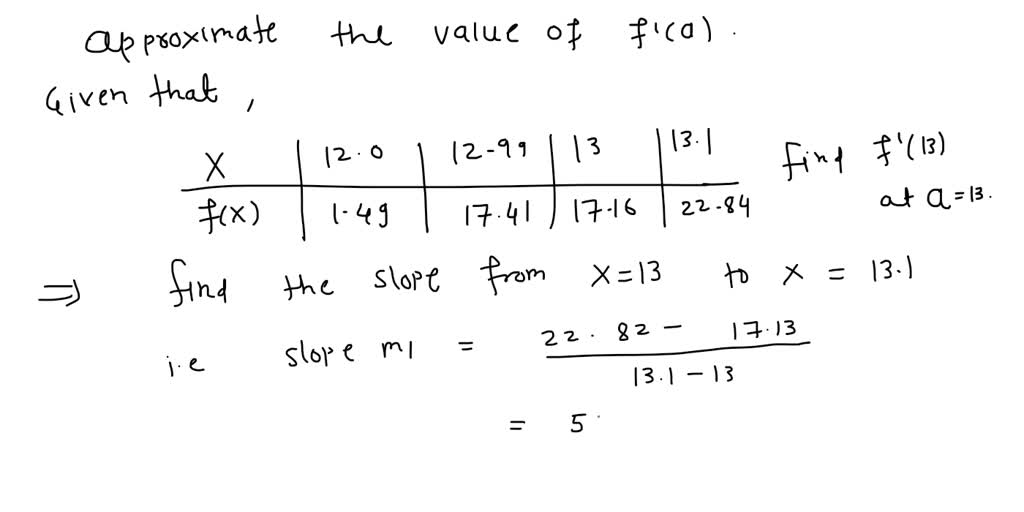 approximate the value of f'(a).
Given that,
X | 12.0 | 12-99 | 13 | 13.1 find f'(13)
f(x) | 1.49 | 17.41 | 17.16 | 22-84 at a=13.
⇒ find the slope from x=13 to x = 13.1
i.e slope m1 = 22.82 - 17.13 / 13.1 - 13
= 5.